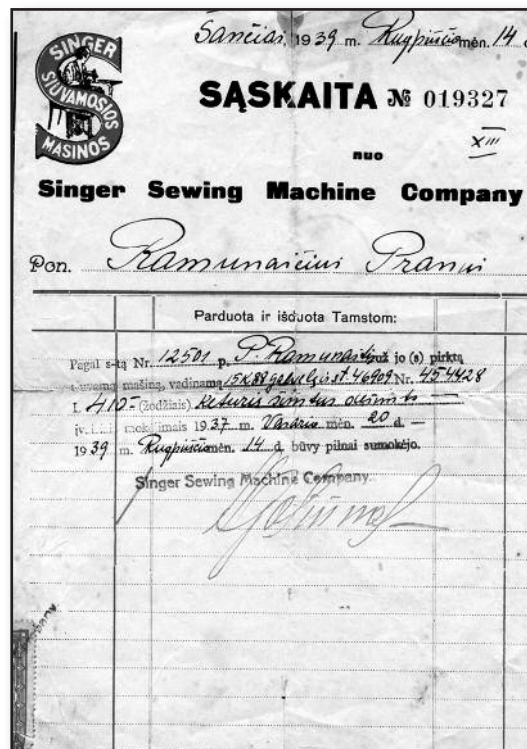 Šančiai, 1939 m. Rugpiūčio mėn. 14
SINGER
SIUVAMOSIOS
MAŠINOS
SĄSKAITA № 019327
XIII
nuo
Singer Sewing Machine Company
Pon. Ramunaičiui Pranui
Parduota ir išduota Tamstom:
Pagal s-tą Nr. 12501 p. P. Ramunaitį už jo (s) pirktą
siuvamą mašiną, vadinamą 15K88 st. 46909 Nr. 454428
L 410- (žodžiais) Keturis šimtus dešimts —
mokėjimais 1937 m. Vasario mėn. 20 d. —
1939 m. Rugpiūčio mėn. 14 d. būvy pilnai sumokėjo.
Singer Sewing Machine Company